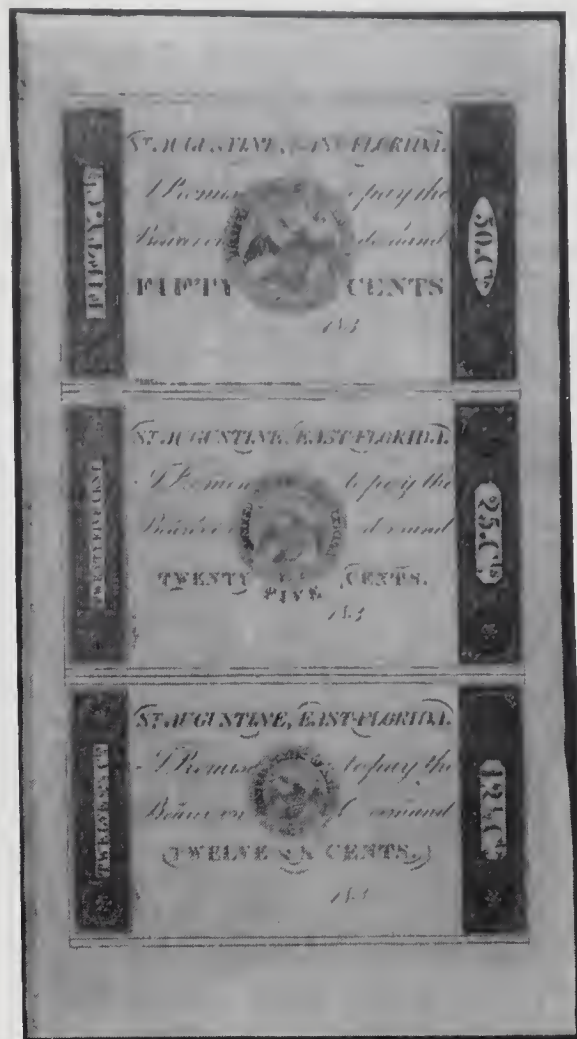 FIFTY Cts
ST. AUGUSTINE, EAST-FLORIDA.
I Promise pay the
Bearer on demand
FIFTY CENTS
183
50.Cts
TWENTY FIVE CENT.
ST. AUGUSTINE, EAST-FLORIDA.
I Promise to pay the
Bearer on demand
TWENTY FIVE CENTS.
183
25.Cts
TWELVE & ½ Cts
ST. AUGUSTINE, EAST-FLORIDA.
I Promise to pay the
Bearer on Demand
TWELVE & ½ CENTS.
183
12½.Cts